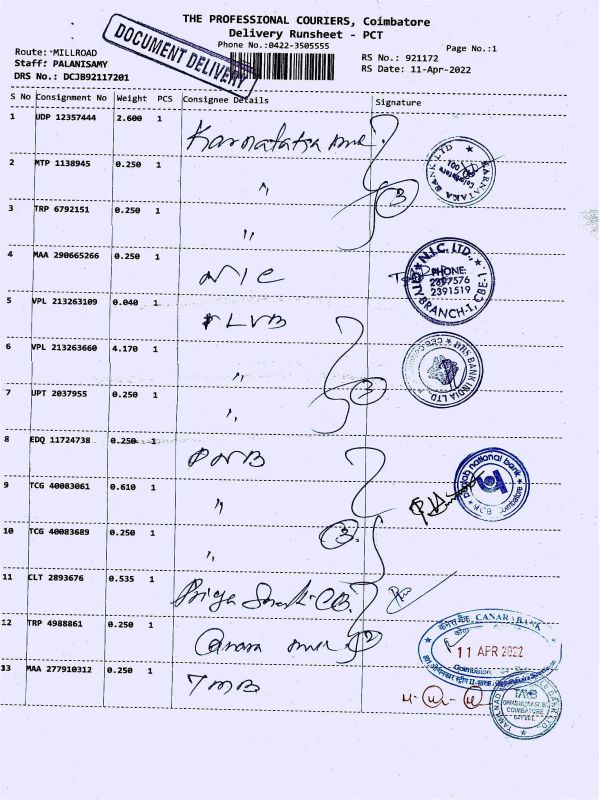 THE PROFESSIONAL COURIERS, Coimbatore
Delivery Runsheet - PCT
Phone No.:0422-3505555
Page No.:1
DOCUMENT DELIVERY
Route: MILLROAD
Staff: PALANISAMY
DRS No.: DCJB92117201
RS No.: 921172
RS Date: 11-Apr-2022
S No Consignment No Weight PCS Consignee Details Signature
1 UDP 12357444 2.600 1 Karnataka
KARNATAKA BANK LTD
Coimbatore
2 MTP 1138945 0.250 1 "
3
3 TRP 6792151 0.250 1 "
4 MAA 290665266 0.250 1 NIC
N.I.C. LTD.,
PHONE:
2397576
2391519
CITY BRANCH-1, CBE-1.
5 VPL 213263109 0.040 1 LVB
6 VPL 213263660 4.170 1 "
DBS BANK INDIA LTD.
3
7 UPT 2037955 0.250 1 "
8 EDQ 11724738 0.250 1 PNB
punjab national bank
Coimbatore
9 TCG 40083061 0.610 1 "
10 TCG 40083689 0.250 1 "
3
11 CLT 2893676 0.535 1 Priya
12 TRP 4988861 0.250 1 Canara
2
केनरा बैंक, CANARA BANK
11 APR 2022
Coimbatore
13 MAA 277910312 0.250 1 TMB
TMB
OPPANAKKARA ST. BR.
COIMBATORE